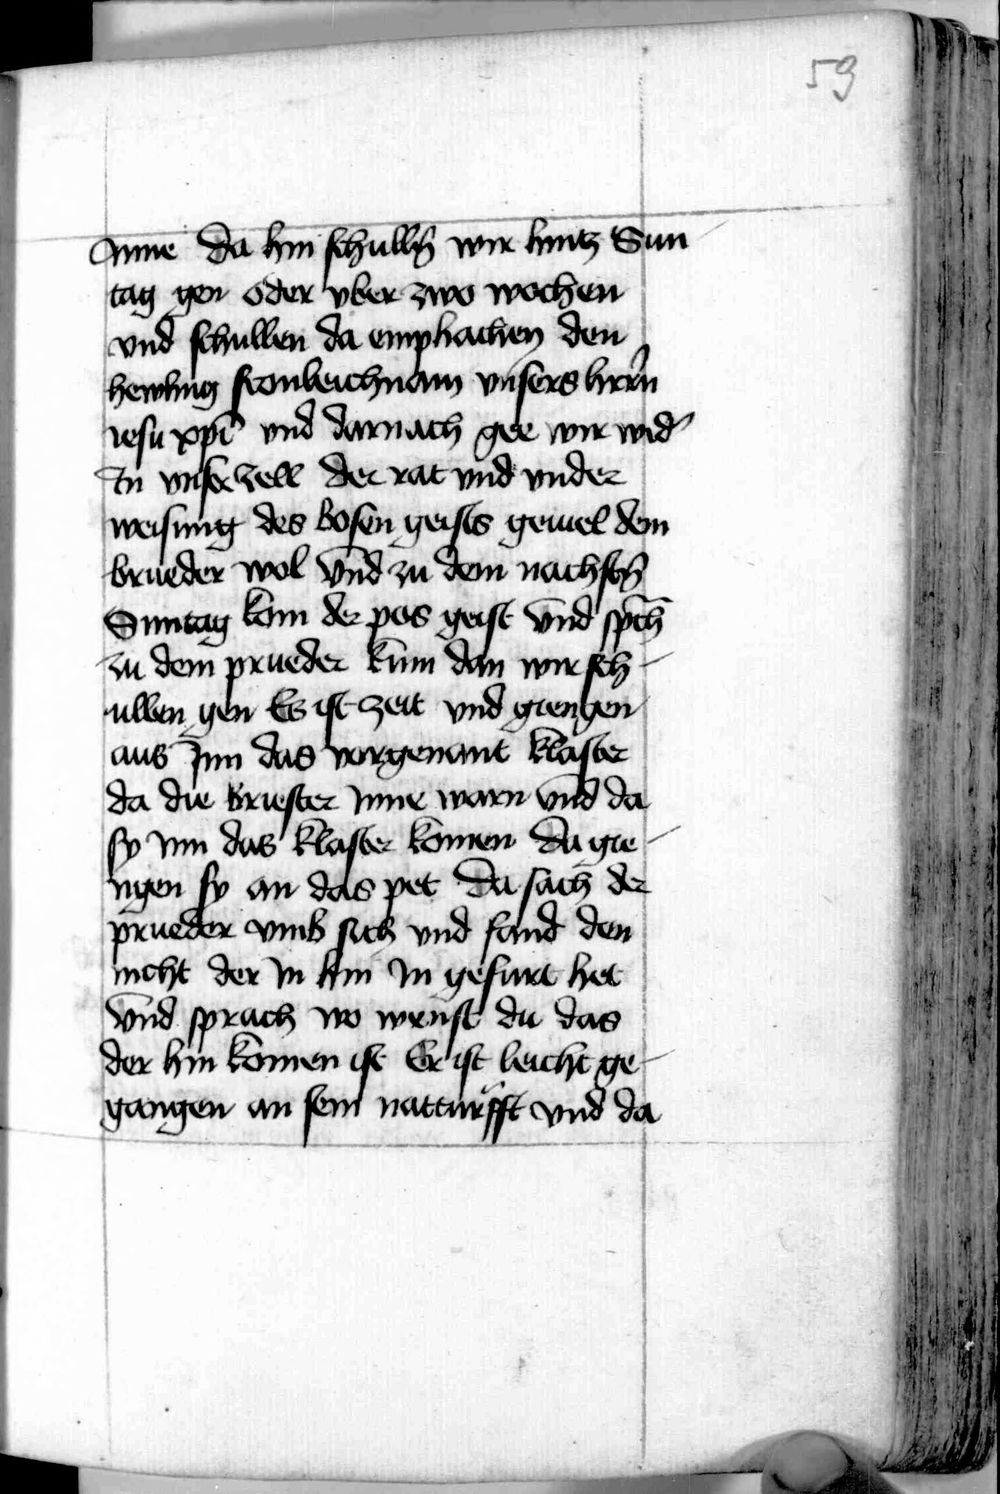 59
Inne da hin schulln̄ wir hintz Sun
tag gen oder vber zwo wochen
vnd schullen da emphachen den
hewling fronleichnam vnsers hern̄
iesu xp̄i vnd darnach gee wir wid'
In vnser zell der rat vnd vnder
weisung des bosen geists geuiel dem
brueder wol Vnd zu dem nachstn̄
Suntag kom der pos geist vnd sp̄ch
zu dem prueder kum dan wir sch
ullen gen Es ist zeit vnd giengen
aus Inn das vorgenant klaster
da die briester Inne warn vnd da
sy Inn das klaster komen da gie
ngen sy an das pet Da sach der
prueder vmb sich vnd fand den
nicht der In hin In gefurt het
Vnd sprach wo wenst du das
der hin komen ist Er ist leicht ge
gangen an sein natturfft vnd da